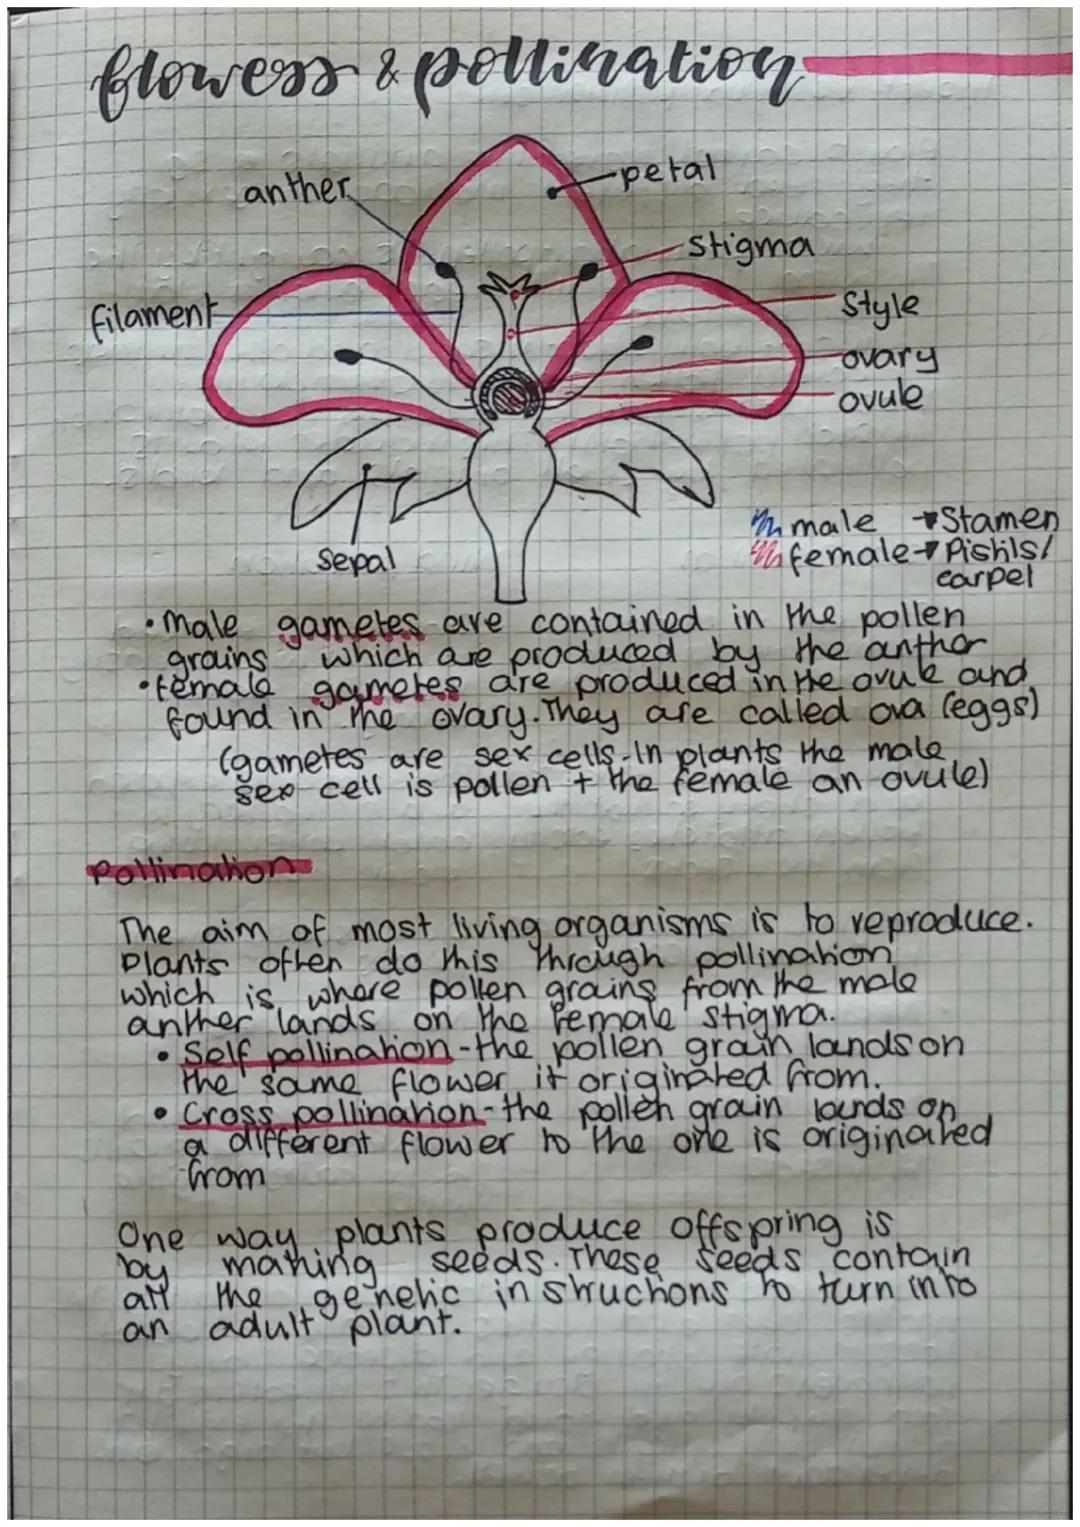 flowers & pollination
anther
petal
stigma
filament
Style
ovary
ovule
sepal
male → Stamen
female → Pistils/
carpel
• male gametes are contained in the pollen
grains which are produced by the anther
• female gametes are produced in the ovule and
found in the ovary. They are called ova (eggs)
(gametes are sex cells. In plants the male
sex cell is pollen + the female an ovule)
Pollination
The aim of most living organisms is to reproduce.
Plants often do this through pollination
which is where pollen grains from the male
anther lands on the female stigma.
• Self pollination - the pollen grain lands on
the same flower it originated from.
• Cross pollination - the pollen grain lands on
a different flower to the one is originated
from
One way plants produce offspring is
by making seeds. These seeds contain
all the genetic instructions to turn into
an adult plant.